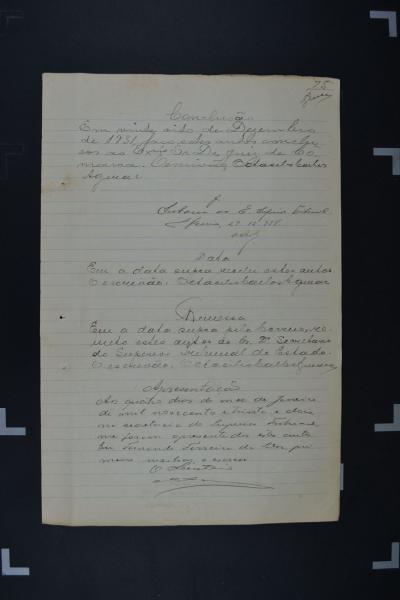 75
Conclusão
Em vinte oito de Dezembro
de 1931, faço estes autos conclu
sos ao Exmo Sr. Dr. Juiz de Co
marca. O escrivão, Octacilio Carlos
Aguiar.
E. Superior Tribunal
Data
Em a data supra recebi estes autos
O escrivão. Octacilio Carlos Aguiar
Remessa
Em a data supra pelo Correio, re
metto estes autos ao Sr. Dr. Secretario
do Superior Tribunal do Estado.
O escrivão. Octacilio Carlos Aguiar
Apresentação
Aos quatro dias do mez de Janeiro
de mil novecentos e trinta e dois
na secretaria do Superior Tribunal
me foram apresentados estes autos
Eu Fernando Ferreira da pri
meiro o escrevi
O Secretario